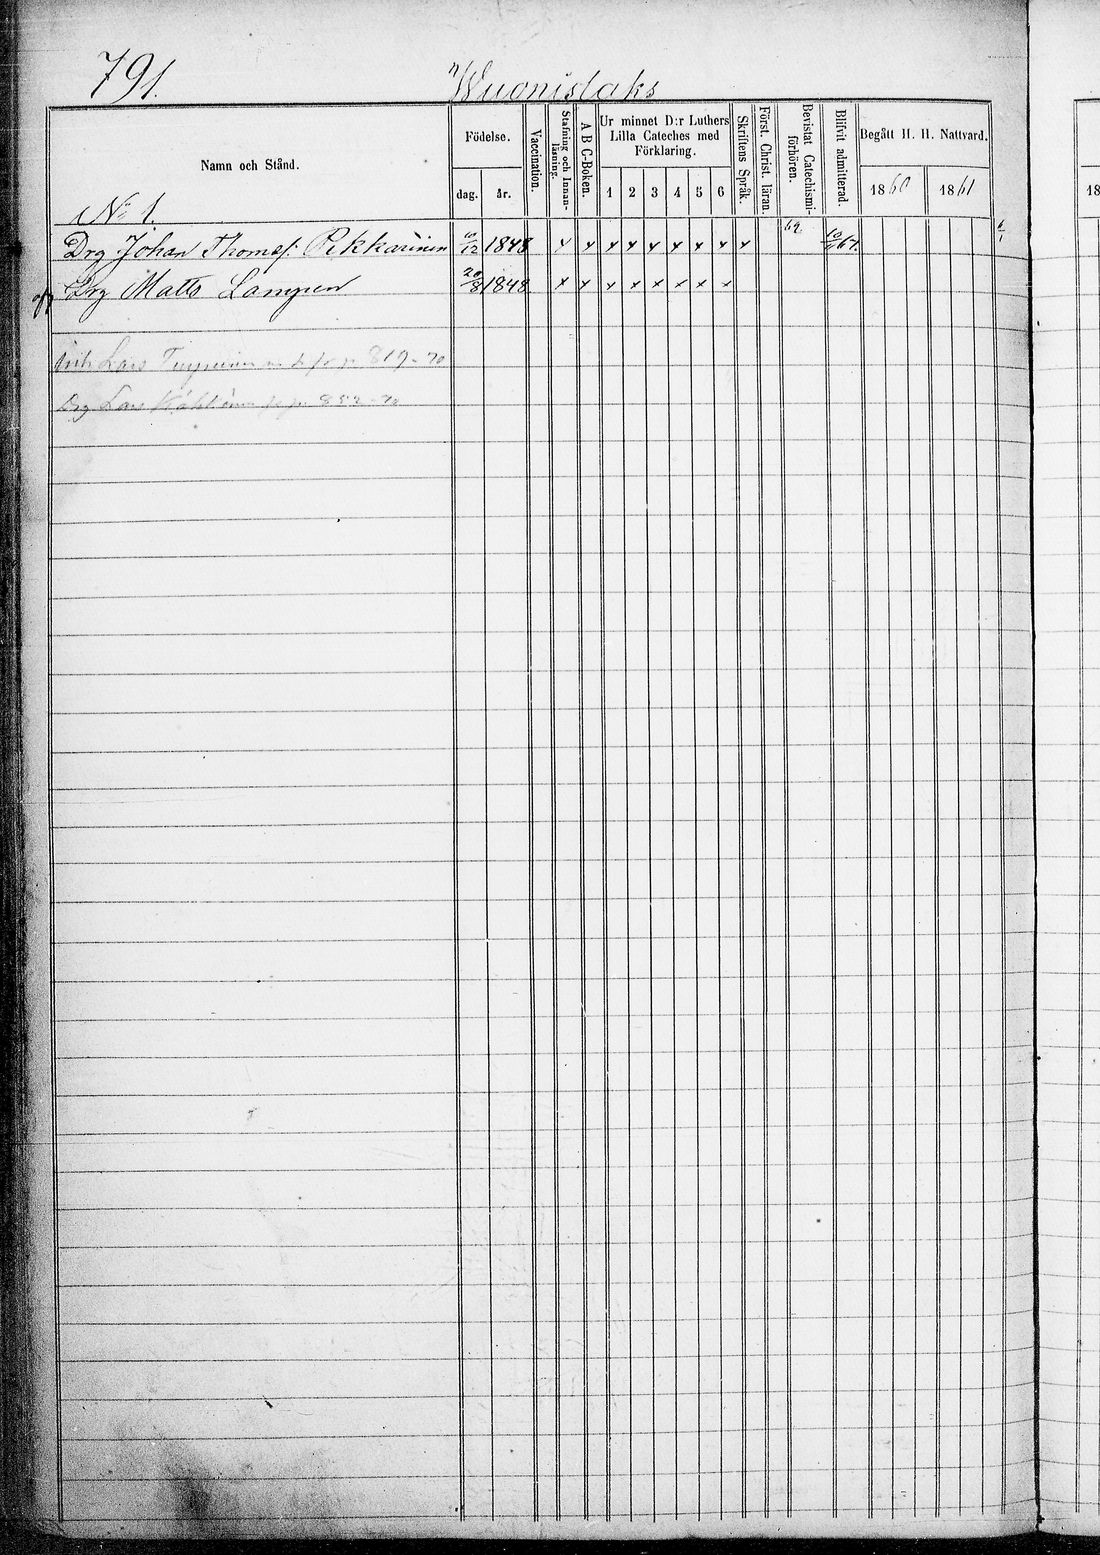 791.
Wuonislaks
Namn och Stånd.
Födelse.
dag.
år.
Vaccination.
Stafning och Innan-
läsning.
A B C-Boken.
Ur minnet D:r Luthers
Lilla Cateches med
Förklaring.
1 2 3 4 5 6
Skriftens Språk.
Först. Christ. läran.
Bevistat Catechismi-
förhören.
Blifvit admitterad.
Begått H. H. Nattvard.
1860
1861
18
No 1.
Drg Johan Thomasf: Pekkarinen /12 1848 x x x x x x x x x 62 64
Drg Matts Lampen 20/8 1848 x x x x x x x x
Lars 819-70
Drg Lars